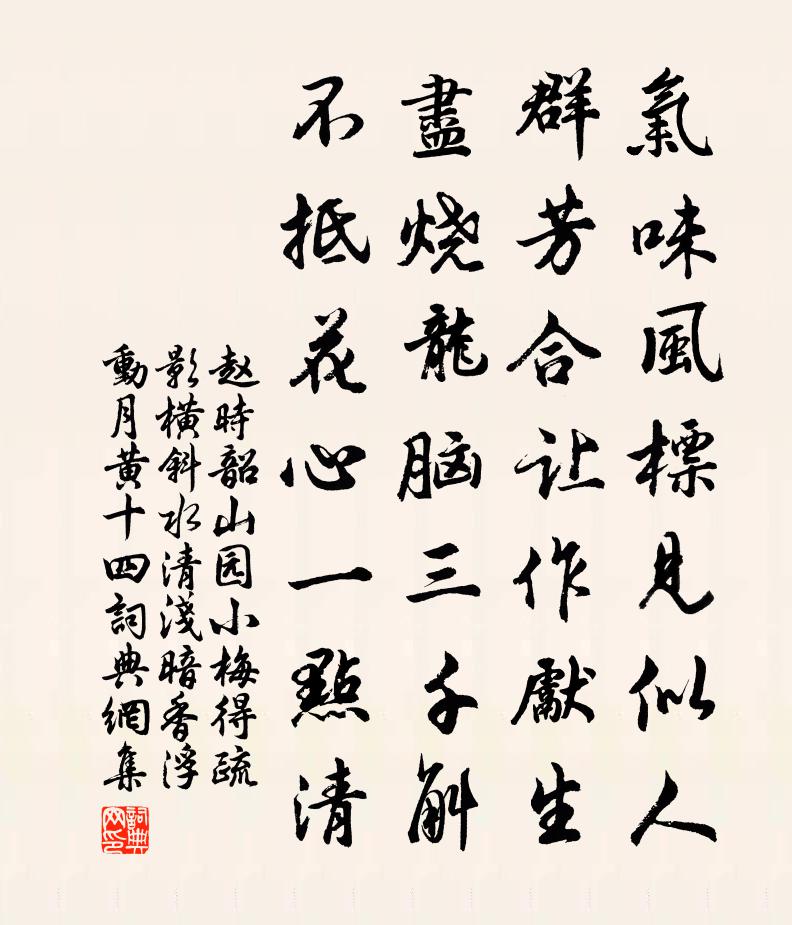 氣味風標見似人
群芳合让作獻生
盡烧龍脑三千斛
不抵花心一點清
赵時韶山园小梅得疏
影橫斜水清淺暗香浮
動月黄十四詞典網集
詞典网印